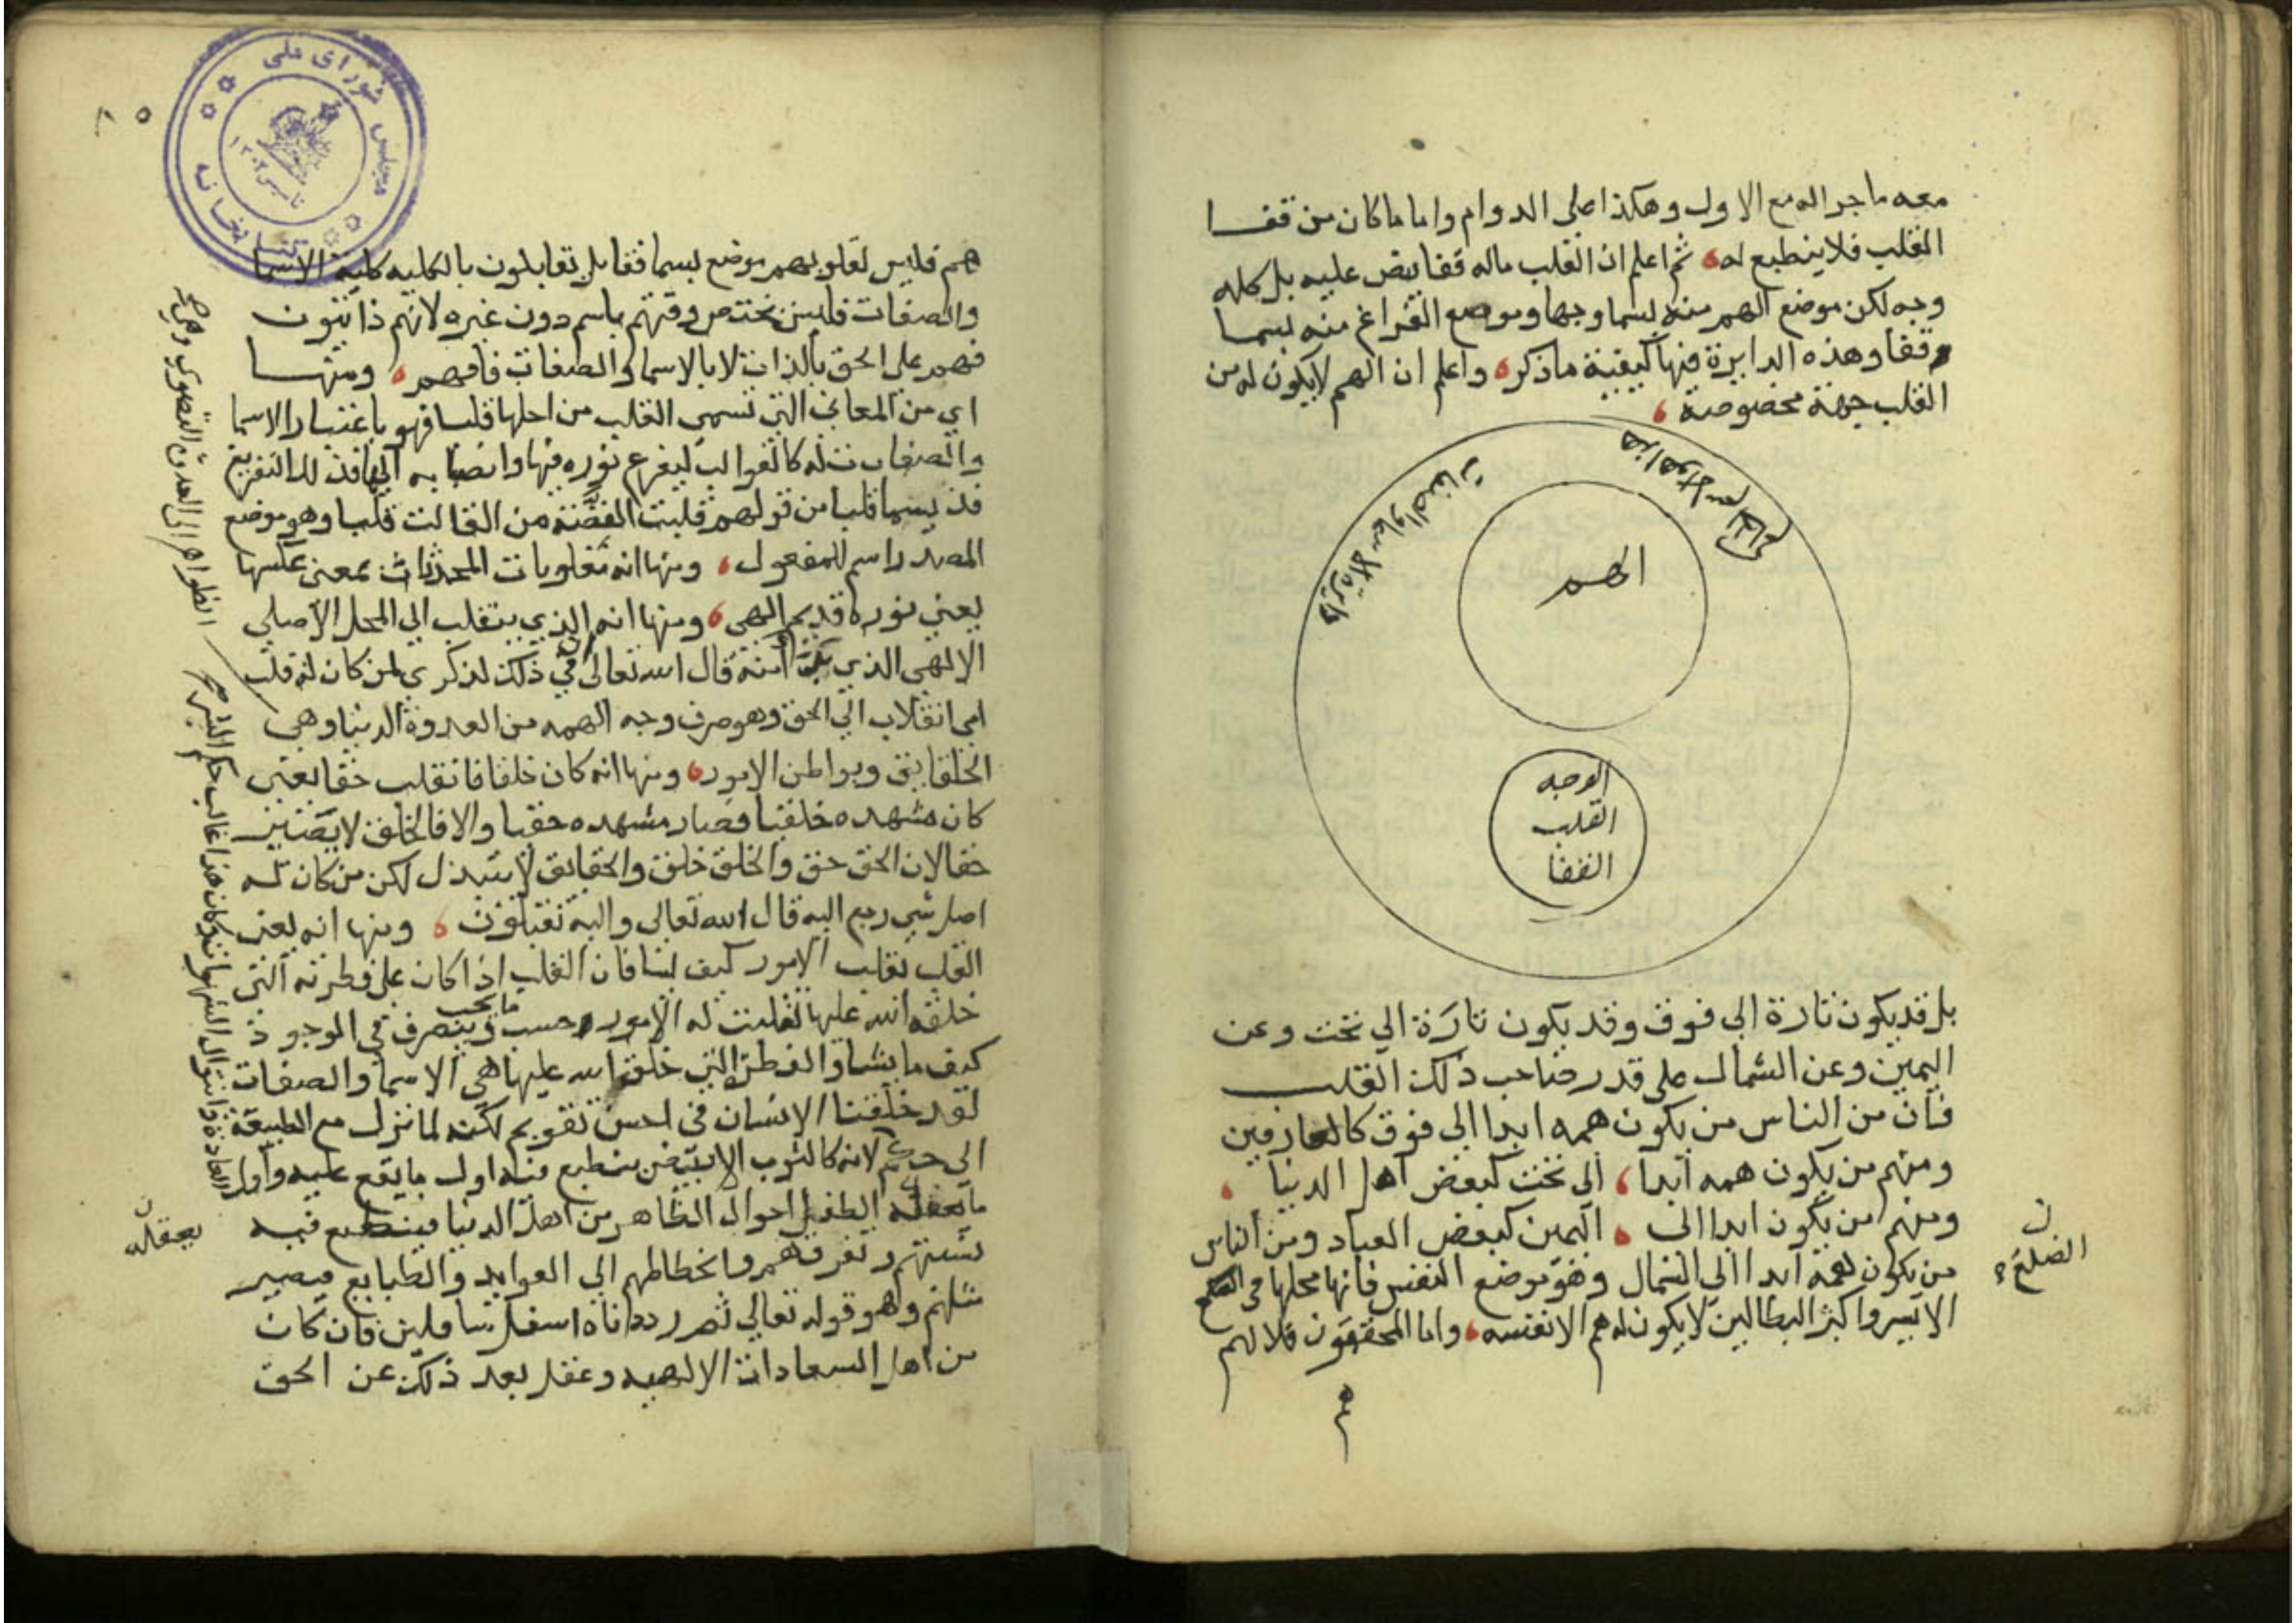 معه ما جراله مع الاول وهكذا على الدوام واما ما كان من قفا
القلب فلا ينطبع له ثم اعلم ان القلب ماله قفا ينص عليه بل كله
وجه لكن موضع الهم منه يسما وجها وموضع الفراغ منه يسما
قفا وهذه الدايرة فيها كيفية ما ذكر واعلم ان الهم لا يكون له من
القلب جهة مخصوصة
دايرة الاسما والصفات
الهم
الوجه
القلب
القفا
بل قد يكون تارة الى فوق وقد يكون تارة الي تحت وعن
اليمين وعن الشمال على قدر صاحب ذلك القلب
فان من الناس من يكون همه ابدا الى فوق كالعارفين
ومنهم من يكون همه ابدا الى تحت كبعض اهل الدنيا
ومنهم من يكون ابدا الى اليمين كبعض العباد ومن الناس
من يكون همه ابدا الي الشمال وهو موضع النفس فانها محلها في
الضلع
الايسر واكثر البطالين لا يكون له هم الا نفسه واما المحققون فلا لهم
هم
مجلس شورای ملی
کتابخانه
٨٥
هم فليس لقلوبهم موضع يسما قفا بل تقابلون بالكليه كلية الاسما
والصفات فليس تختص وقتهم باسم دون غيره لانهم ذاتيون
فهم على الحق بالذات لا بالاسما والصفات فافهم ومنها
اي من المعاني التي تسمى القلب من اجلها قلبا فهو باعتبار الاسما
والصفات له كالقوالب ليفرغ نوره فيها وانصبابه اليها فذلك التفريغ
قد يسما قلبا من قولهم قلبت الفضة من القالب قلبا وهو موضع
المصدر اسم للمفعول ومنها انه مقلوبات المحدثات بمعنى عكسها
يعني نوره قديم الهي ومنها انه الذي ينقلب الى المحل الاصلي
الالهي الذي منه قال الله تعالى ان في ذلك لذكري لمن كان له قلب
اي انقلاب الي الحق وهو صرف وجه الهمه من العدوة الدنيا وهي
الظواهر الى العدوة القصوى وهي
الحقايق وبواطن الامور ومنها انه كان خلقا فانقلب حقا يعني
كان مشهده خلقيا فصار مشهده حقيا والا فالخلق لا يصير
حقا لان الحق حق والخلق خلق والحقايق لا تتبدل لكن من كان له
اصل شي رجع اليه قال الله تعالى واليه تقلبون ومنها انه يعني
القلب يقلب الامور كيف يشا فان القلب اذا كان على فطرته التي
خلقه الله عليها تقلبت له الامور حسب ما يحب ويتصرف في الموجود
كيف ما يشا والفطرة التي خلقه الله عليها هي الاسما والصفات
لقد خلقنا الانسان في احسن تقويم لكنه لما نزل مع الطبيعة
الي لانه كالثوب الابيض ينطبع فيه اول ما يقع عليه واول
ما يعقله الطفل احوال الظاهر من اهل الدنيا فينطبع فيه
يعقله
تشتتهم وتفرقهم وانحطاطهم الى العوايد والطبايع فيصير
مثلهم وهو قوله تعالي ثم رددناه اسفل سافلين فان كان
من اهل السعادات الالهيه وعقل بعد ذلك عن الحق